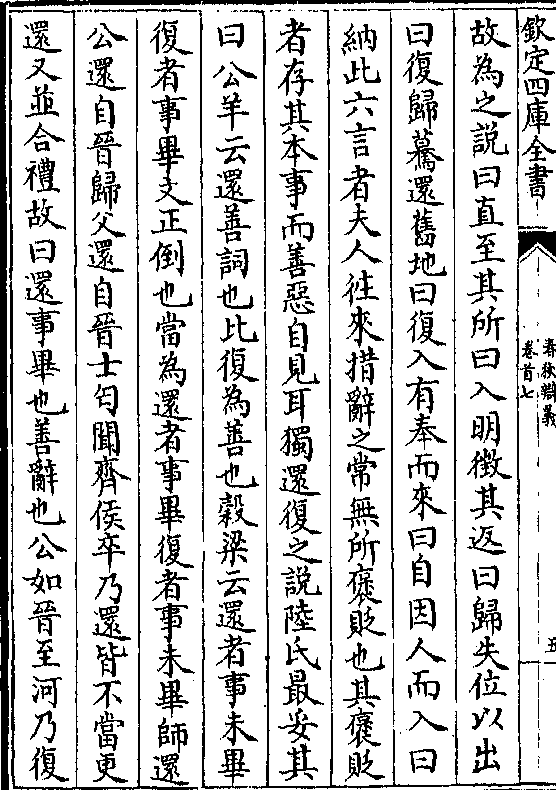 欽定四庫全書
春秋辯義
卷首七
五
故為之説曰直至其所曰入明徴其返曰歸失位以出
曰復歸驀還舊地曰復入有奉而來曰自因人而入曰
納此六言者夫人徃來措辭之常無所褒貶也其褒貶
者存其本事而善惡自見耳獨還復之説陸氏最妥其
曰公羊云還善詞也比復為善也糓梁云還者事未畢
復者事畢文正倒也當為還者事畢復者事未畢師還
公還自晉歸父還自晉士匄聞齊侯卒乃還皆不當更
還又並合禮故曰還事畢也善辭也公如晉至河乃復